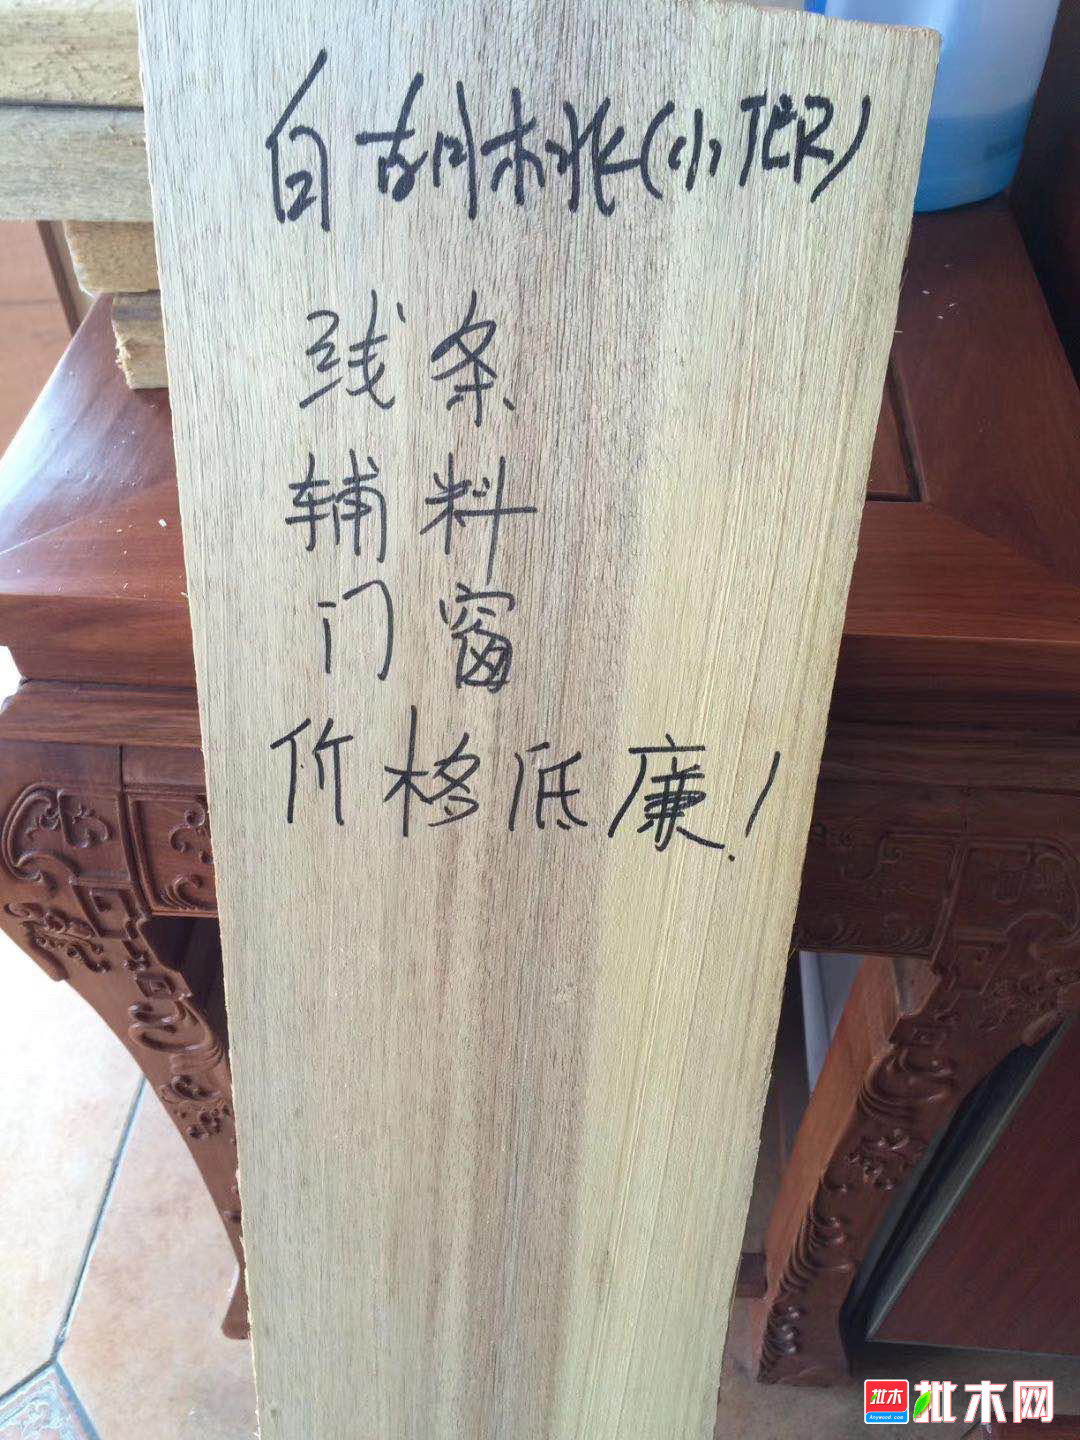 白胡桃(小TER)
线条
辅料
门窗
价格低廉!
批木
Anywood.com
批木网